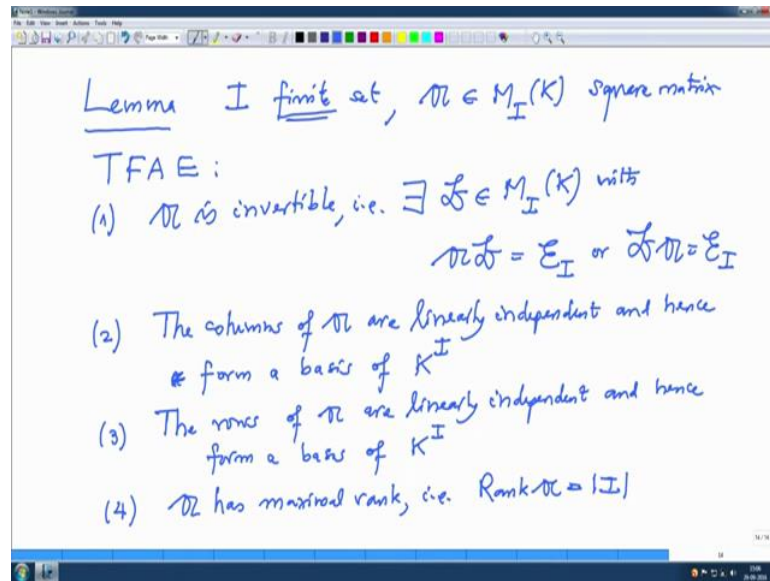 Lemma I finite set, 𝔄 ∈ M_I(K) square matrix
TFAE :
(1) 𝔄 is invertible, i.e. ∃ 𝔅 ∈ M_I(K) with
𝔄𝔅 = ℰ_I or 𝔅𝔄 = ℰ_I
(2) The columns of 𝔄 are linearly independent and hence
form a basis of K^I
(3) The rows of 𝔄 are linearly independent and hence
form a basis of K^I
(4) 𝔄 has maximal rank, i.e. Rank 𝔄 = |I|